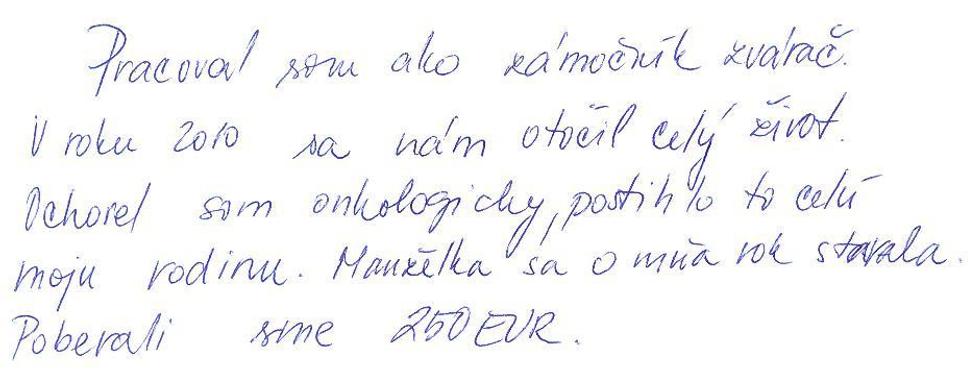 Pracoval som ako zámočník zvárač.
V roku 2010 sa nám otočil celý život.
Ochorel som onkologicky, postihlo to celú
moju rodinu. Manželka sa o mňa rok starala.
Poberali sme 250 EUR.